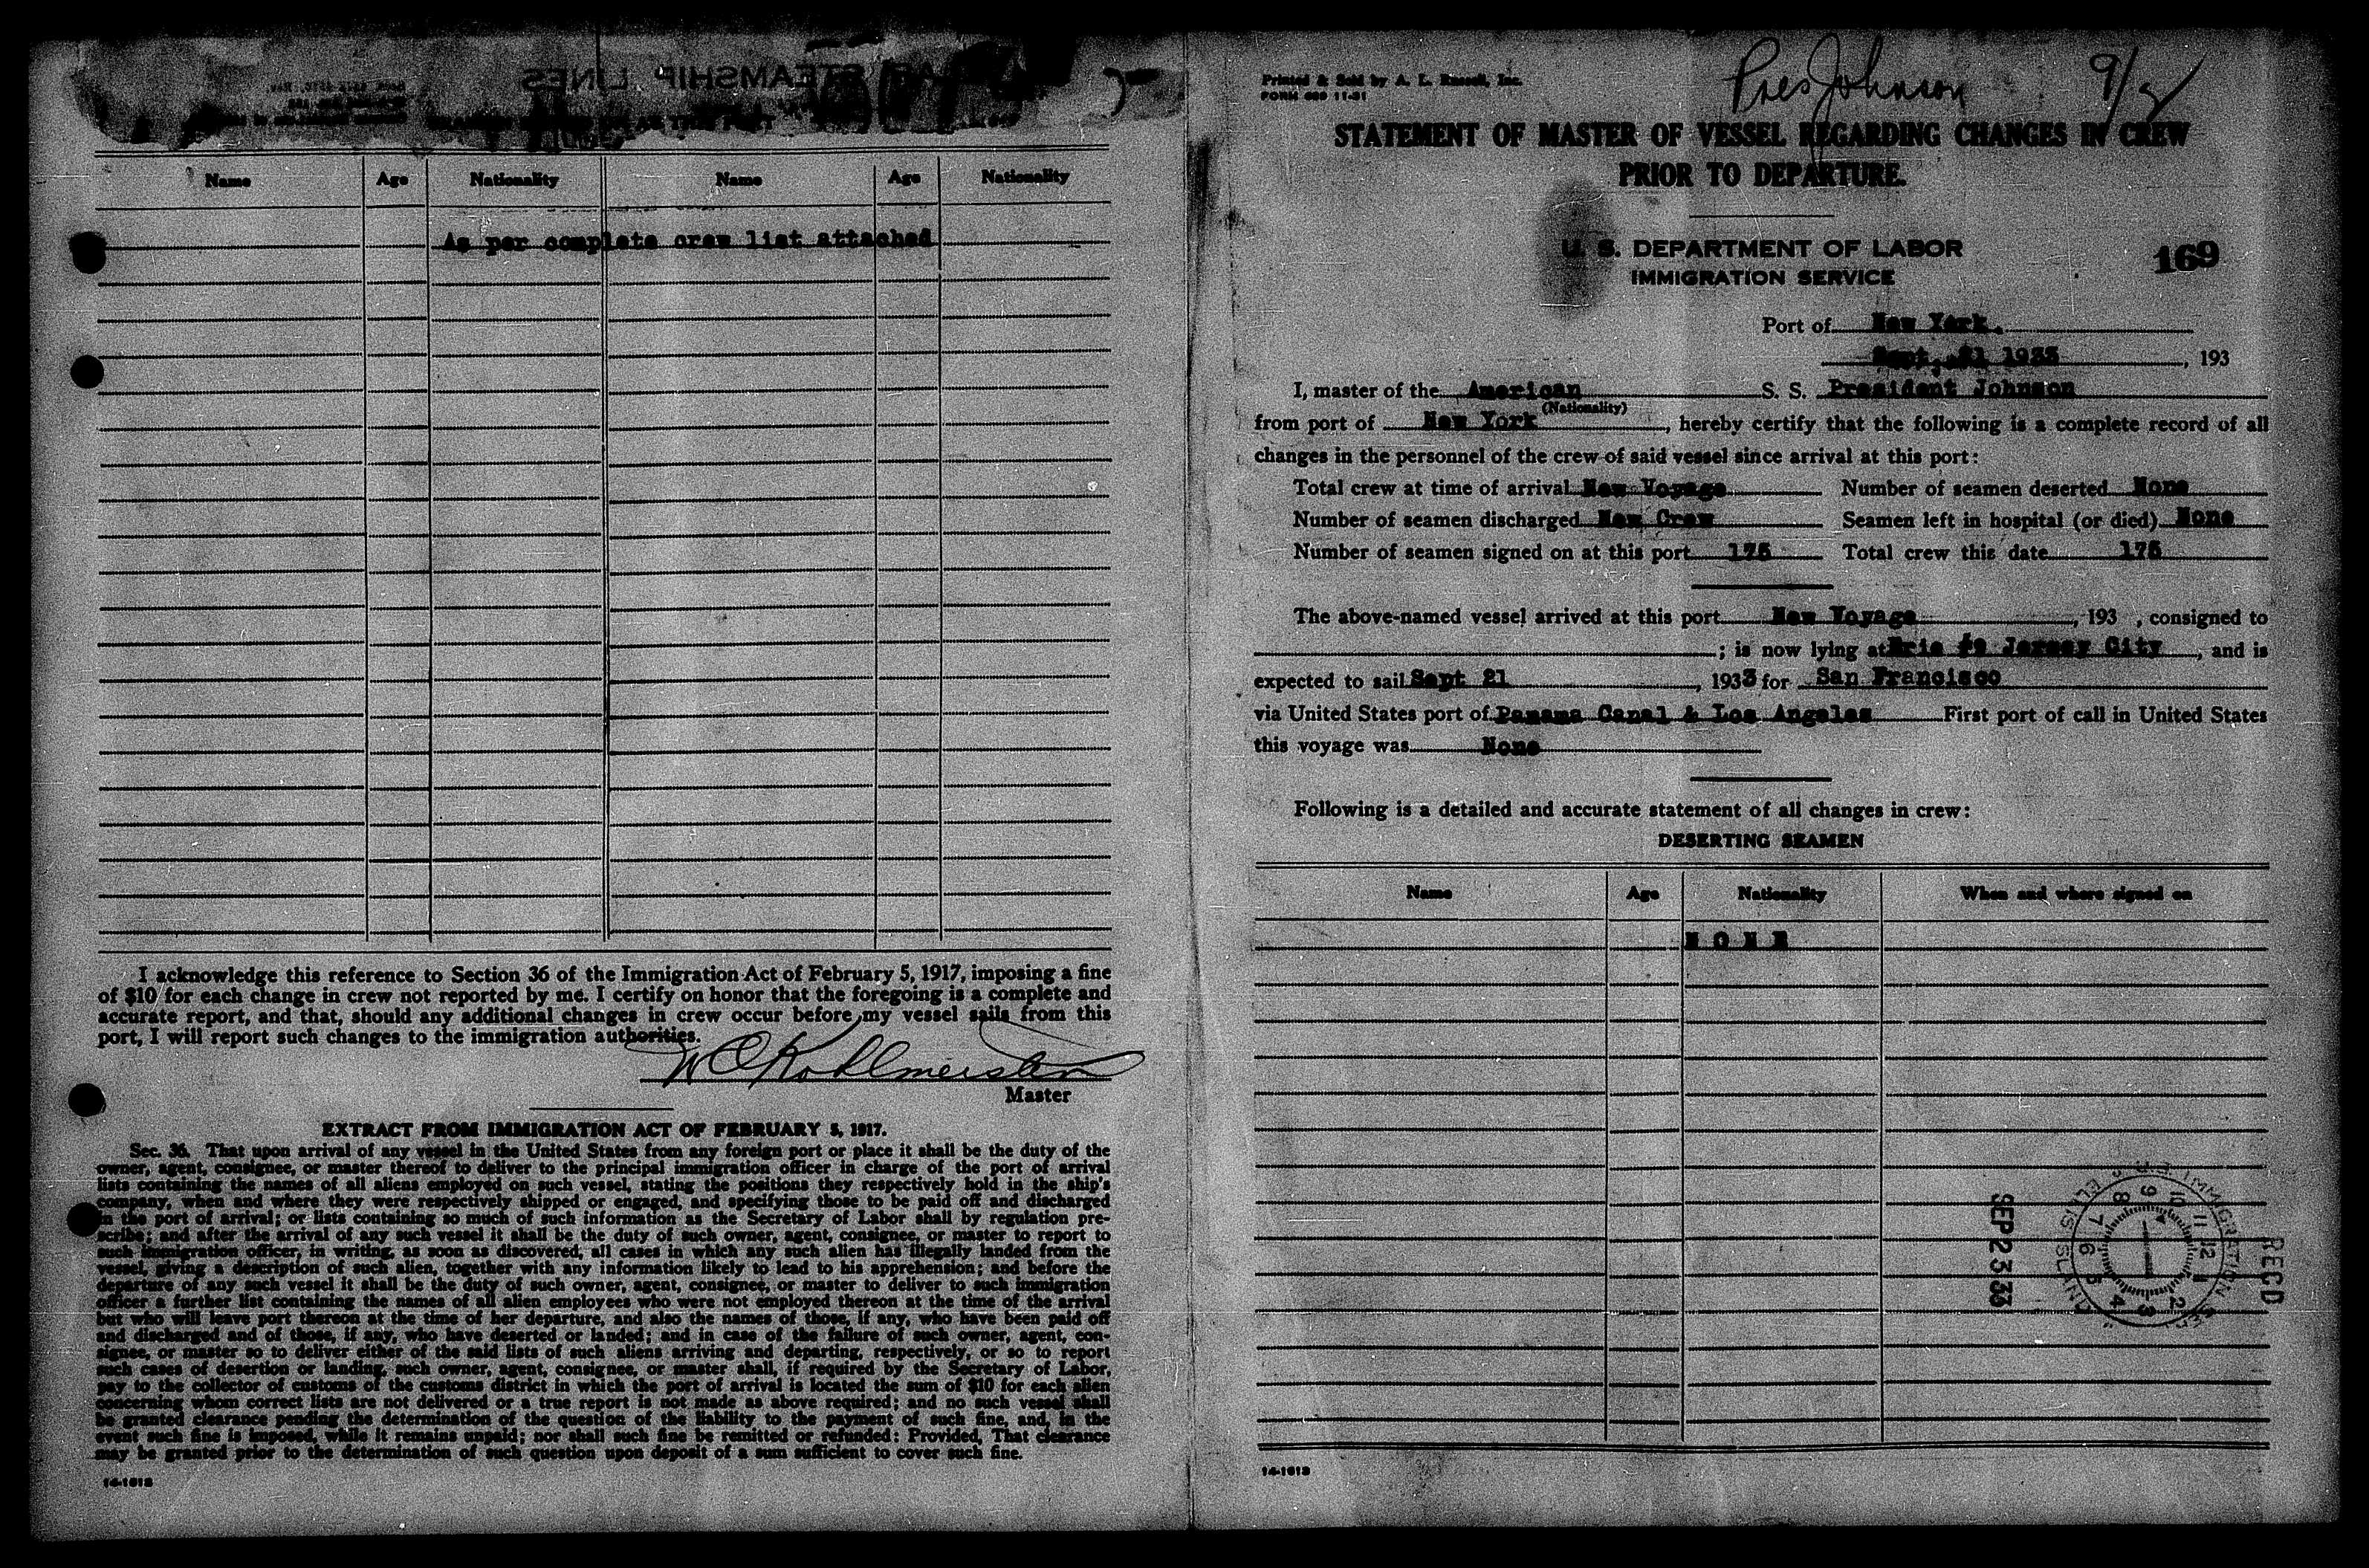 STEAMSHIP LINES
Name Age Nationality Name Age Nationality
As per complete crew list attached
I acknowledge this reference to Section 36 of the Immigration Act of February 5, 1917, imposing a fine
of $10 for each change in crew not reported by me. I certify on honor that the foregoing is a complete and
accurate report, and that, should any additional changes in crew occur before my vessel sails from this
port, I will report such changes to the immigration authorities.
Master
EXTRACT FROM IMMIGRATION ACT OF FEBRUARY 5, 1917.
Sec. 36. That upon arrival of any vessel in the United States from any foreign port or place it shall be the duty of the
owner, agent, consignee, or master thereof to deliver to the principal immigration officer in charge of the port of arrival
lists containing the names of all aliens employed on such vessel, stating the positions they respectively hold in the ship's
company, when and where they were respectively shipped or engaged, and specifying those to be paid off and discharged
in the port of arrival; or lists containing so much of such information as the Secretary of Labor shall by regulation pre-
scribe; and after the arrival of any such vessel it shall be the duty of such owner, agent, consignee, or master to report to
such immigration officer, in writing, as soon as discovered, all cases in which any such alien has illegally landed from the
vessel, giving a description of such alien, together with any information likely to lead to his apprehension; and before the
departure of any such vessel it shall be the duty of such owner, agent, consignee, or master to deliver to such immigration
officer a further list containing the names of all alien employees who were not employed thereon at the time of the arrival
but who will leave port thereon at the time of her departure, and also the names of those, if any, who have been paid off
and discharged and of those, if any, who have deserted or landed; and in case of the failure of such owner, agent, con-
signee, or master so to deliver either of the said lists of such aliens arriving and departing, respectively, or so to report
such cases of desertion or landing, such owner, agent, consignee, or master shall, if required by the Secretary of Labor,
pay to the collector of customs of the customs district in which the port of arrival is located the sum of $10 for each alien
concerning whom correct lists are not delivered or a true report is not made as above required; and no such vessel shall
be granted clearance pending the determination of the question of the liability to the payment of such fine, and, in the
event such fine is imposed, while it remains unpaid; nor shall such fine be remitted or refunded: Provided, That clearance
may be granted prior to the determination of such question upon deposit of a sum sufficient to cover such fine.
14-1613
Pres Johnson
Printed & Sold by A. L. Russell, Inc.
FORM 689 11-31
STATEMENT OF MASTER OF VESSEL REGARDING CHANGES IN CREW
PRIOR TO DEPARTURE.
U. S. DEPARTMENT OF LABOR
IMMIGRATION SERVICE
169
Port of New York.
Sept. 21 1933, 193
I, master of the American S. S. President Johnson
(Nationality)
from port of New York, hereby certify that the following is a complete record of all
changes in the personnel of the crew of said vessel since arrival at this port:
Total crew at time of arrival New Voyage Number of seamen deserted None
Number of seamen discharged New Crew Seamen left in hospital (or died) None
Number of seamen signed on at this port 175 Total crew this date 175
The above-named vessel arrived at this port New Voyage, 193 , consigned to
; is now lying at Erie #9 Jersey City, and is
expected to sail Sept 21, 1933 for San Francisco
via United States port of Panama Canal & Los Angeles First port of call in United States
this voyage was None
Following is a detailed and accurate statement of all changes in crew:
DESERTING SEAMEN
Name Age Nationality When and where signed on
N O N E
SEP 23 33
REC'D
14-1613